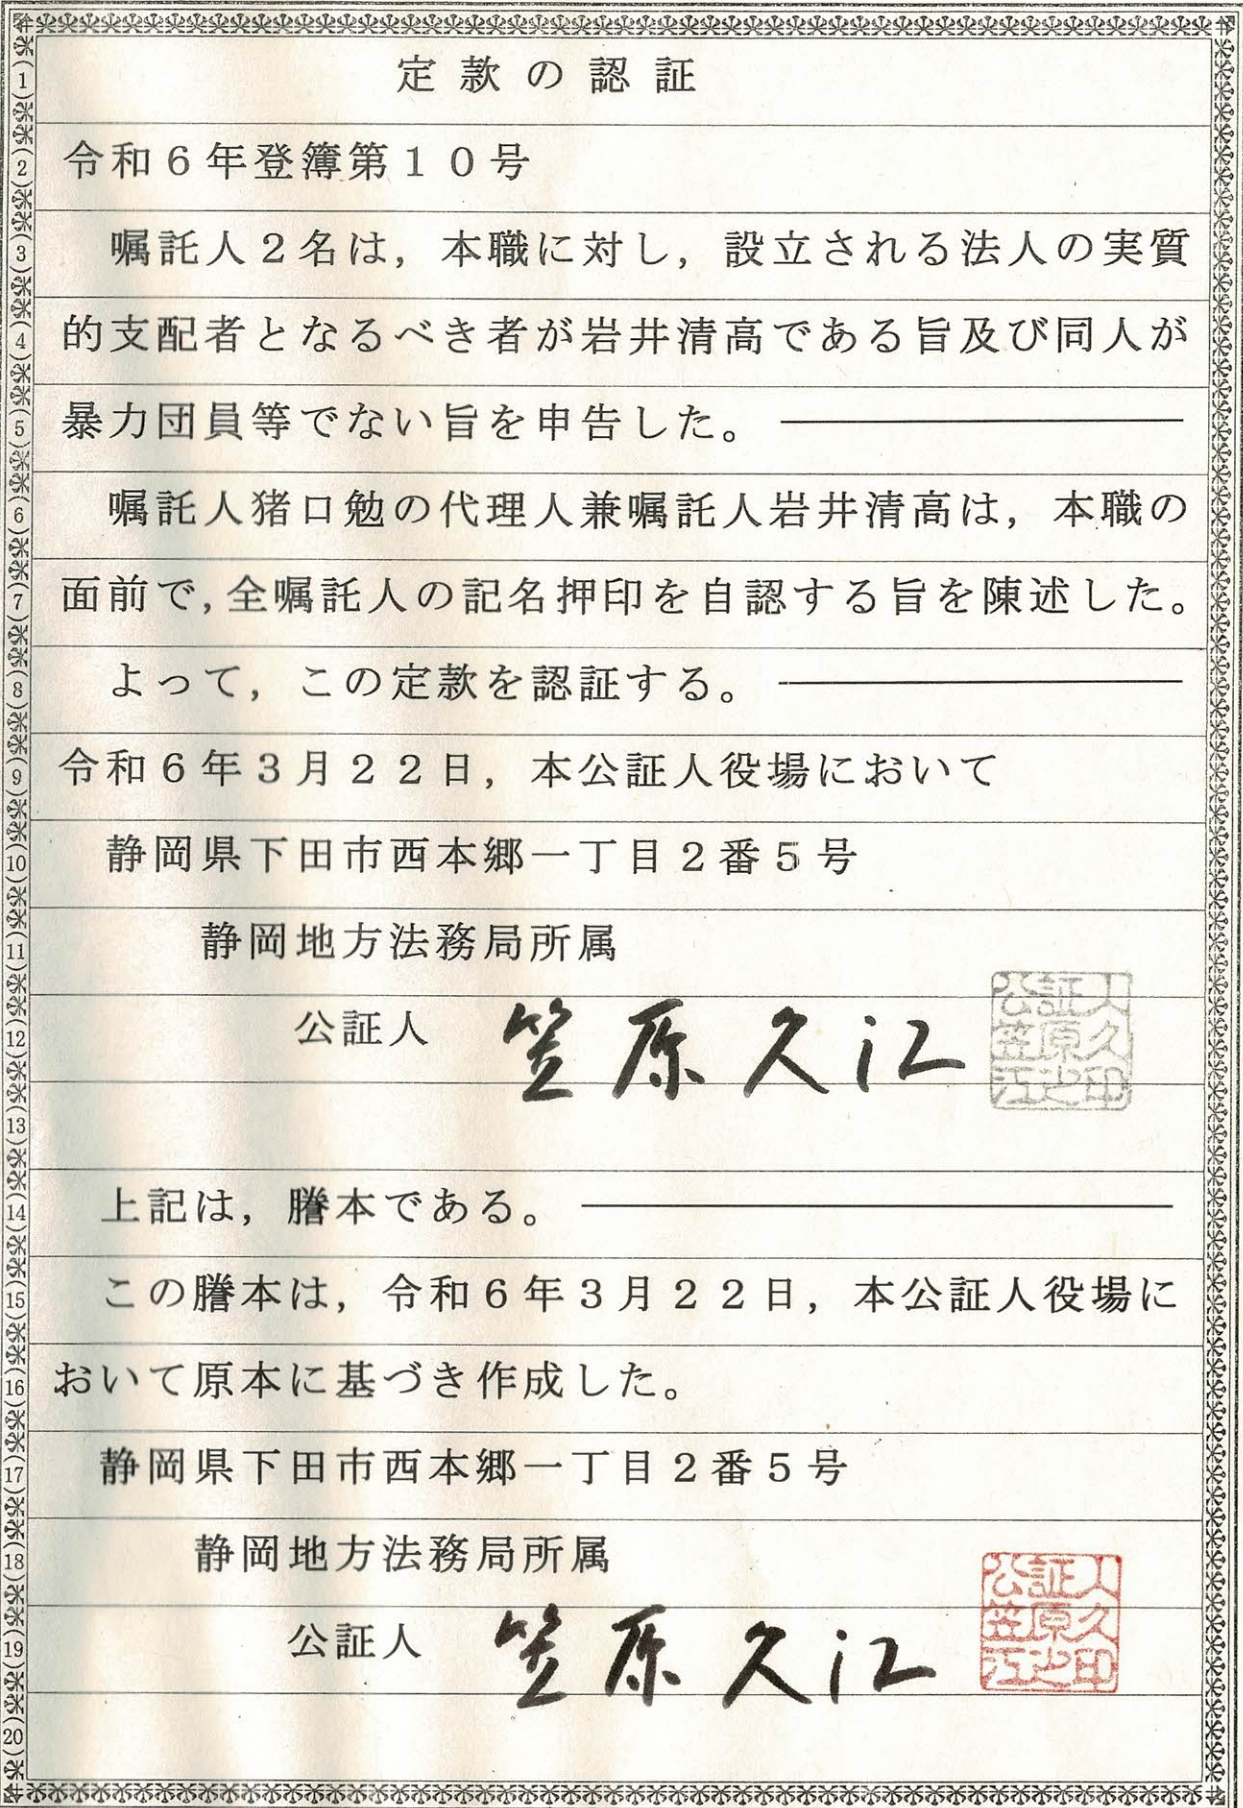 定款の認証
(1)
令和6年登簿第10号
(2)
嘱託人2名は，本職に対し，設立される法人の実質
(3)
的支配者となるべき者が岩井清高である旨及び同人が
(4)
暴力団員等でない旨を申告した。
(5)
嘱託人猪口勉の代理人兼嘱託人岩井清高は，本職の
(6)
面前で，全嘱託人の記名押印を自認する旨を陳述した。
(7)
よって，この定款を認証する。
(8)
令和6年3月22日，本公証人役場において
(9)
静岡県下田市西本郷一丁目2番5号
(10)
静岡地方法務局所属
(11)
公証人 笠原久江
公証人
笠原久
江之印
(12)
(13)
上記は，謄本である。
(14)
この謄本は，令和6年3月22日，本公証人役場に
(15)
おいて原本に基づき作成した。
(16)
静岡県下田市西本郷一丁目2番5号
(17)
静岡地方法務局所属
(18)
公証人 笠原久江
公証人
笠原久
江之印
(19)
(20)